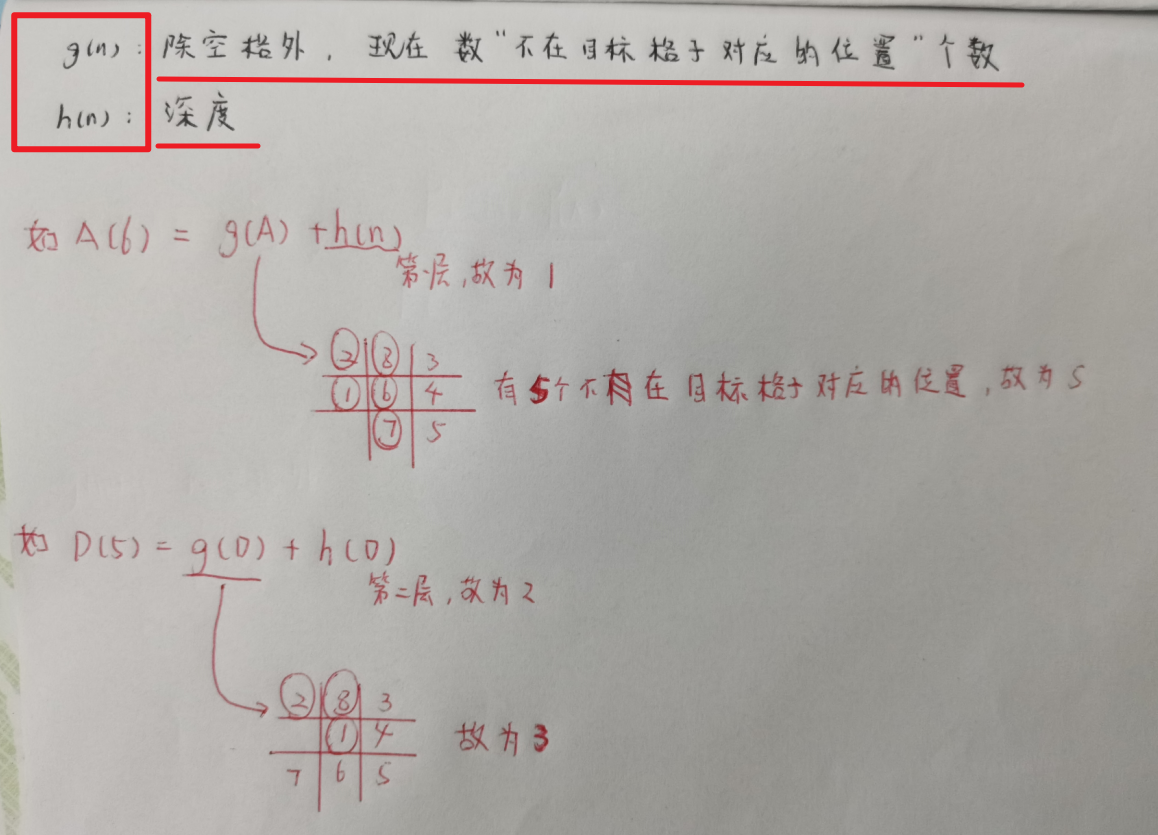 g(n): 除空格外，现在数"不在目标格子对应的位置"个数
h(n): 深度
如 A(6) = g(A) + h(n)
第一层,故为 1
2 8 3
1 6 4
7 5
有5个不在目标格子对应的位置，故为5
如 D(5) = g(D) + h(D)
第二层,故为2
2 8 3
1 4
7 6 5
故为3